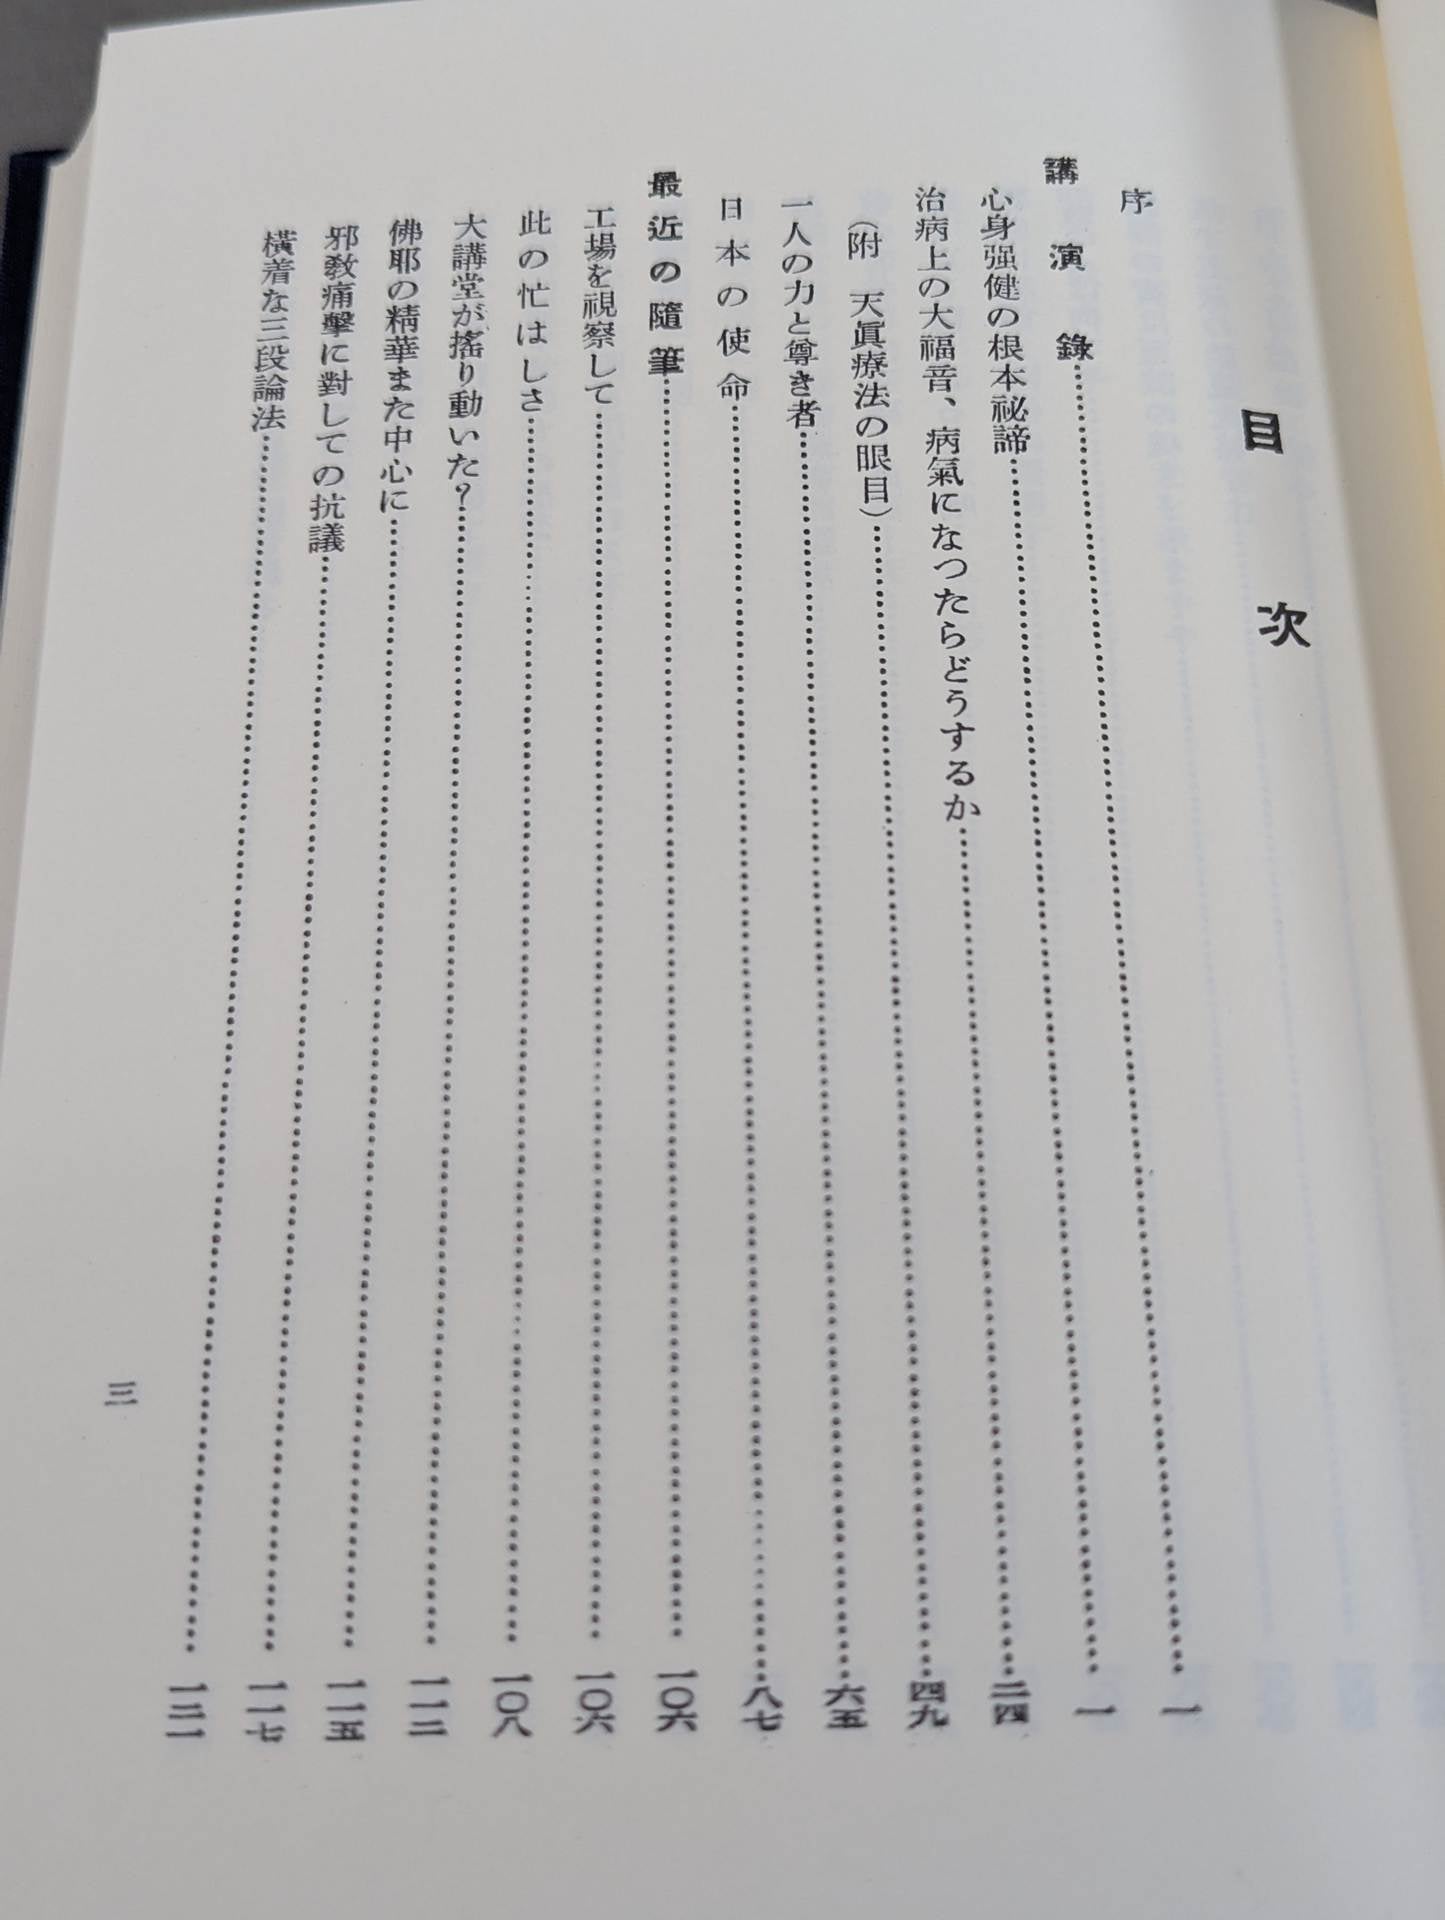 目次
序
講演錄……一
心身强健の根本祕諦……一
治病上の大福音、病氣になつたらどうするか……二四
(附 天眞療法の眼目)……四九
一人の力と尊き者……六五
日本の使命……八七
最近の隨筆……一〇六
工場を視察して……一〇六
此の忙はしさ……一〇八
大講堂が搖り動いた?……一一二
佛耶の精華また中心に……一一五
邪敎痛擊に對しての抗議……一一七
橫着な三段論法……一二一
三